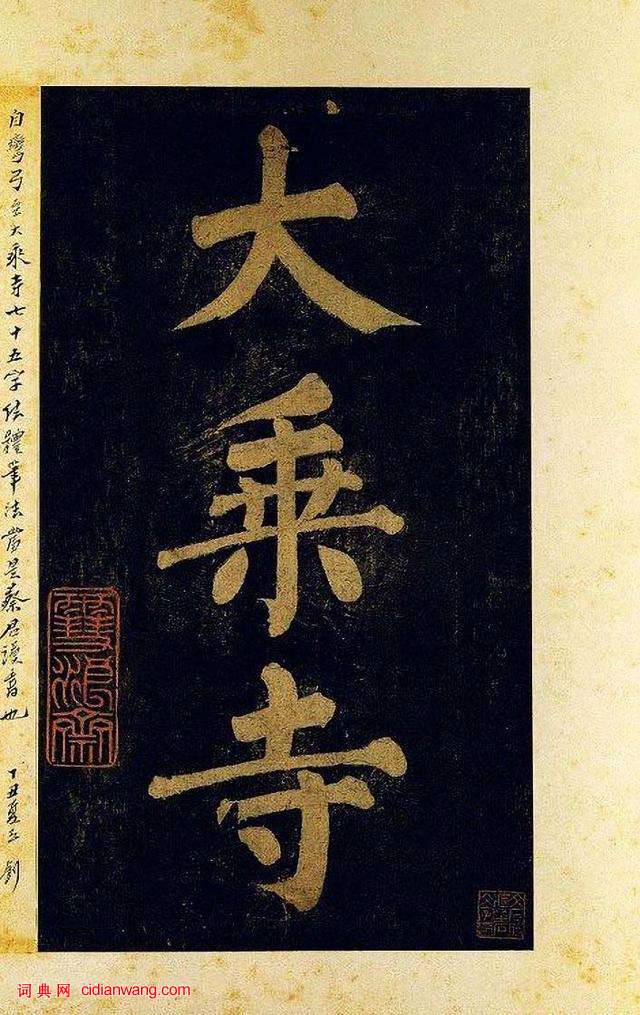 大乘寺
自彎弓至大乘寺七十五字結體筆法當是蔡君謨書也
丁丑夏
词典网 cidianwang.com